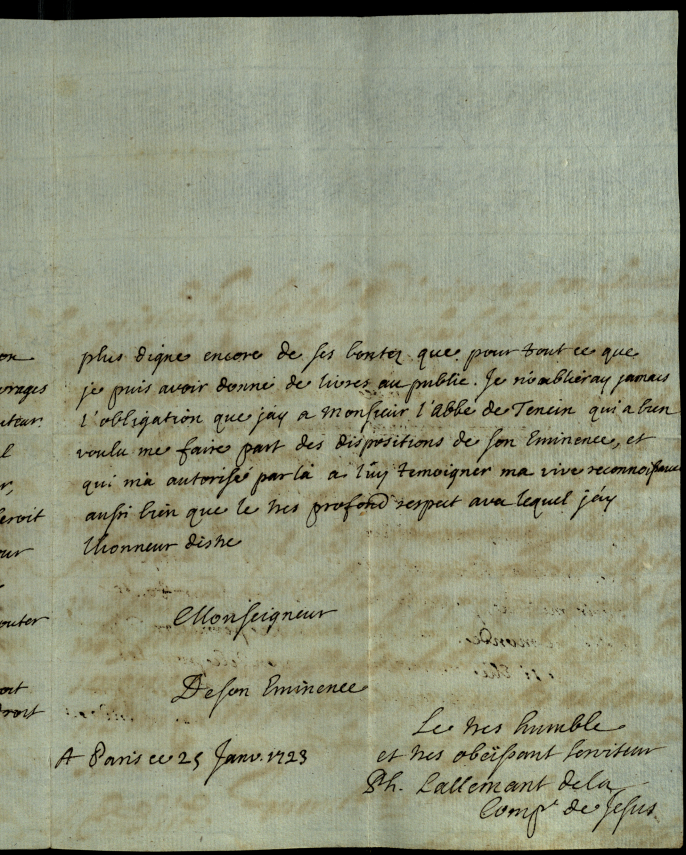 on
uvrages
uteur
l
r,
eroit
our
outer
ort
droit
plus digne encore de ses bontez que pour tout ce que
je puis avoir donné de livres au public. Je n'oublieray jamais
l'obligation que j'ay a Monsieur l'Abbé de Tencin qui a bien
voulu me faire part des dispositions de son Eminence, et
qui m'a autorisé par là a luy temoigner ma vive reconnoissance
aussi bien que le tres profond respect avec lequel j'ay
l'honneur d'istre
Monseigneur
De son Eminence
Le tres humble
A Paris ce 25 Janv. 1723
et tres obeïssant serviteur
Ph. Lallemant de la
Comp.e de Jesus